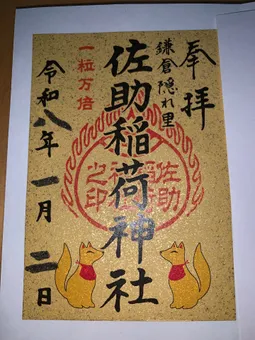 奉拝
鎌倉隠れ里
佐助稲荷神社
佐助稲荷神社之印
一粒万倍
令和八年一月二日